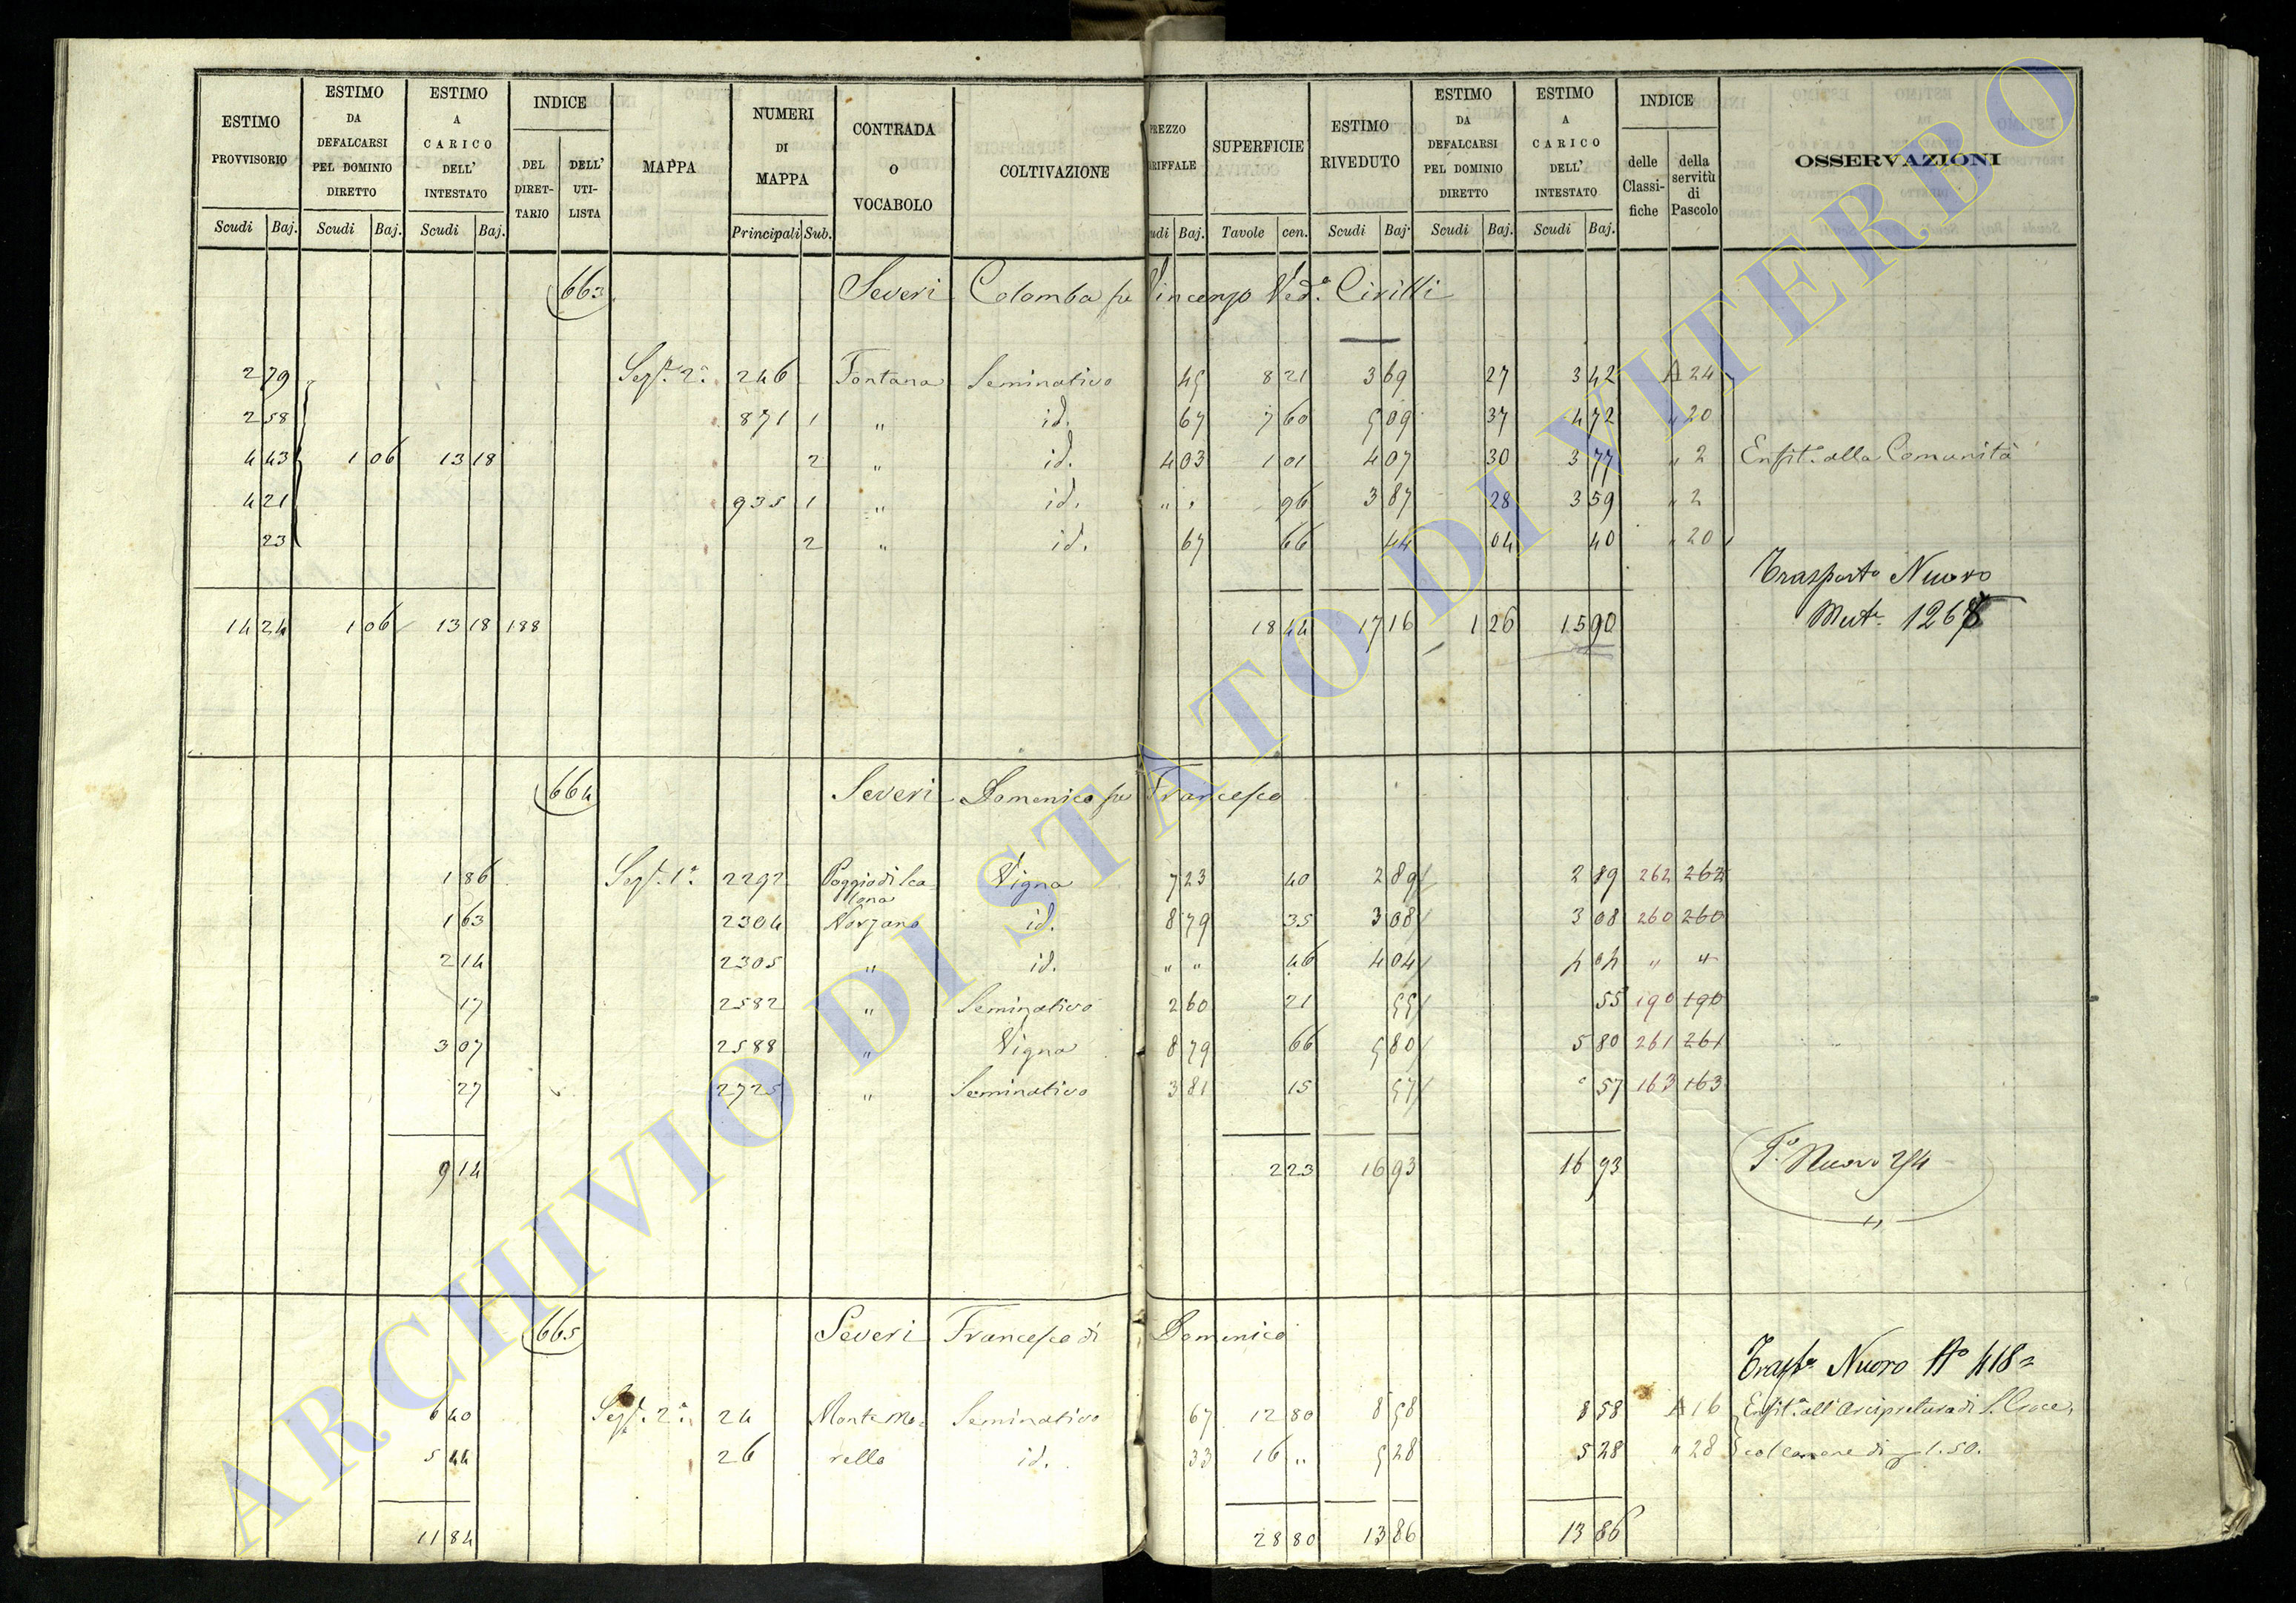 ESTIMO PROVVISORIO | ESTIMO DA DEFALCARSI PEL DOMINIO DIRETTO | ESTIMO A CARICO DELL' INTESTATO | INDICE | MAPPA | NUMERI DI MAPPA | CONTRADA O VOCABOLO | COLTIVAZIONE | PREZZO TARIFFALE | SUPERFICIE | ESTIMO RIVEDUTO | ESTIMO DA DEFALCARSI PEL DOMINIO DIRETTO | ESTIMO A CARICO DELL' INTESTATO | INDICE | OSSERVAZIONI
DEL DIRETTARIO | DELL' UTILISTA | delle Classifiche | della servitù di Pascolo
Scudi Baj. | Scudi Baj. | Scudi Baj. | Principali Sub. | udi Baj. | Tavole cen. | Scudi Baj. | Scudi Baj. | Scudi Baj.
663 Severi Colomba fu Vincenzo Ved.a Cirilli
2 79 | Sez.e 2.a | 246 | Fontana | Seminativo | 45 | 8 21 | 3 69 | 27 | 3 42 | A 24
2 58 | 871 1 | " | id. | 67 | 7 60 | 5 09 | 37 | 4 72 | " 20
4 43 | 1 06 | 13 18 | 2 | " | id. | 4 03 | 1 01 | 4 07 | 30 | 3 77 | " 2 | Enfit.a alla Comunità
4 21 | 935 1 | " | id. | " " | 96 | 3 87 | 28 | 3 59 | " 2
23 | 2 | " | id. | 67 | 66 | 44 | 04 | 40 | " 20
Trasporto Nuovo
14 24 | 1 06 | 13 18 | 188 | 18 44 | 17 16 | 1 26 | 15 90 | Mut.
664 Severi Domenico fu Francesco
1 86 | Sez.e 1.a | 2292 | Poggio di Sca
tona | Vigna | 7 23 | 40 | 2 89 | 2 89 | 262 262
1 63 | 2304 | Norzano | id. | 8 79 | 35 | 3 08 | 3 08 | 260 260
2 14 | 2305 | " | id. | " " | 46 | 4 04 | 4 04 | " "
17 | 2582 | " | Seminativo | 2 60 | 21 | 55 | 55 | 190 190
3 07 | 2588 | " | Vigna | 8 79 | 66 | 5 80 | 5 80 | 261 261
27 | 2725 | " | Seminativo | 3 81 | 15 | 57 | 57 | 163 163
9 14 | 2 23 | 16 93 | 16 93 | T.o Nuovo
665 Severi Francesco di Domenico
Trasp.o Nuovo N.o 418
6 40 | Sez.e 2.a | 24 | Monte Mo= | Seminativo | 67 | 12 80 | 8 58 | 8 58 | A 16 | Enfit.a all'Arcipretura di S. Croce,
5 44 | 26 | rello | id. | 33 | 16 " | 5 28 | 5 28 | " 28 | col canone di 1.50.
11 84 | 28 80 | 13 86 | 13 86
ARCHIVIO DI STATO DI VITERBO